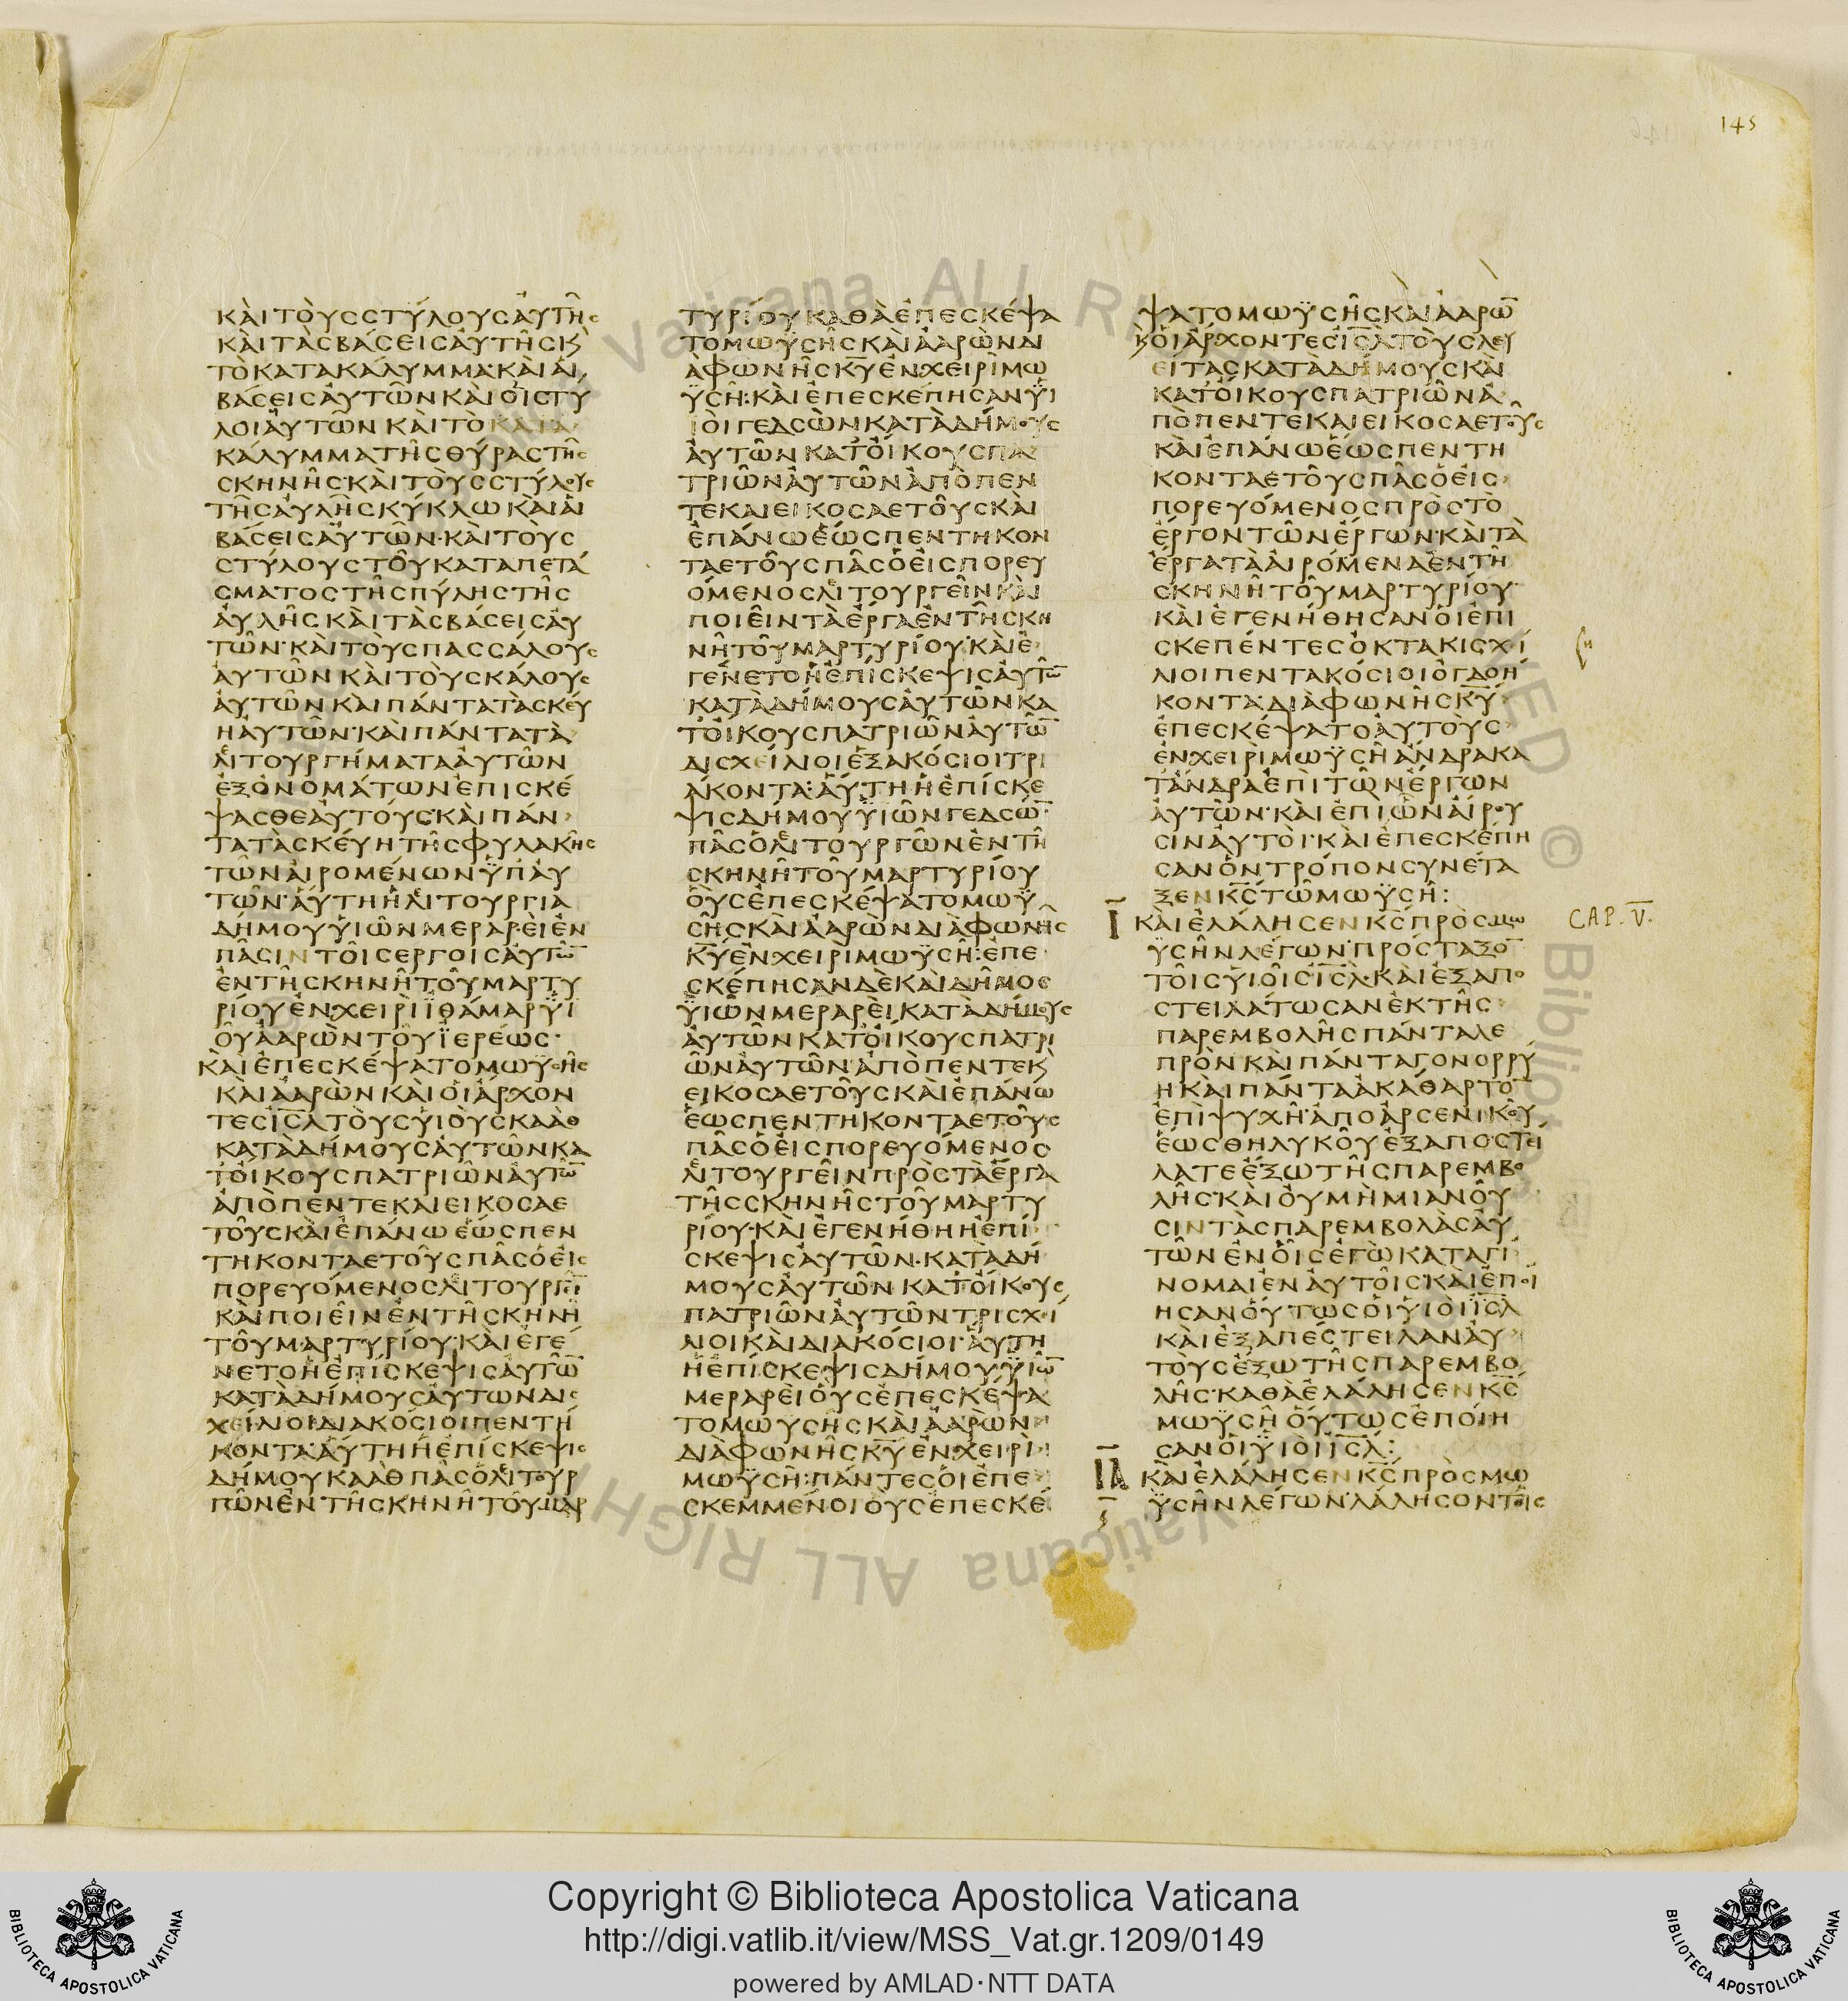 145
ΚΑΙΤΟΥССΤΥΛΟΥСΑΥΤΗС
ΚΑΙΤΑСΒΑСΕΙСΑΥΤΗСΚ
ΤΟΚΑΤΑΚΑΛΥΜΜΑ·ΚΑΙΑΙ
ΒΑСΕΙСΑΥΤΩΝΚΑΙΟΙСΤΥ
ΛΟΙΑΥΤΩΝΚΑΙΤΟΚΑΤΑ
ΚΑΛΥΜΜΑΤΗСΘΥΡΑСΤΗС
СΚΗΝΗС·ΚΑΙΤΟΥССΤΥΛΟΥС
ΤΗСΑΥΛΗСΚΥΚΛΩΚΑΙΑΙ
ΒΑСΕΙСΑΥΤΩΝ·ΚΑΙΤΟΥС
СΤΥΛΟΥСΤΟΥΚΑΤΑΠΕΤΑ
СΜΑΤΟСΤΗСΠΥΛΗСΤΗС
ΑΥΛΗСΚΑΙΤΑСΒΑСΕΙСΑΥ
ΤΩΝ·ΚΑΙΤΟΥСΠΑССΑΛΟΥС
ΑΥΤΩΝΚΑΙΤΟΥСΚΑΛΟΥС
ΑΥΤΩΝΚΑΙΠΑΝΤΑΤΑСΚΕΥ
ΗΑΥΤΩΝ·ΚΑΙΠΑΝΤΑΤΑ
ΛΙΤΟΥΡΓΗΜΑΤΑΑΥΤΩΝ
ΕΞΟΝΟΜΑΤΩΝΕΠΙСΚΕ
ΨΑСΘΕΑΥΤΟΥС·ΚΑΙΠΑΝ
ΤΑΤΑСΚΕΥΗΤΗСΦΥΛΑΚΗС
ΤΩΝΑΙΡΟΜΕΝΩΝΫΠΑΥ
ΤΩΝ·ΑΥΤΗΗΛΙΤΟΥΡΓΙΑ
ΔΗΜΟΥΥΙΩΝΜΕΡΑΡΕΙΕΝ
ΠΑСΙΝΤΟΙСΕΡΓΟΙСΑΥΤΩ̅
ΕΝΤΗСΚΗΝΗΤΟΥΜΑΡΤΥ
ΡΙΟΥΕΝΧΕΙΡΙΪΘΑΜΑΡΥΙ
ΟΥΑΑΡΩΝΤΟΥΪΕΡΕΩС·
ΚΑΙΕΠΕСΚΕΨΑΤΟΜΩΥСΗС
ΚΑΙΑΑΡΩΝΚΑΙΟΙΑΡΧΟΝ
ΤΕСΙ̅С̅Λ̅ΤΟΥСΥΙΟΥСΚΑΑΘ
ΚΑΤΑΔΗΜΟΥСΑΥΤΩΝΚΑ
ΤΟΙΚΟΥСΠΑΤΡΙΩΝΑΥΤΩ̅
ΑΠΟΠΕΝΤΕΚΑΙΕΙΚΟСΑΕ
ΤΟΥСΚΑΙΕΠΑΝΩΕΩСΠΕΝ
ΤΗΚΟΝΤΑΕΤΟΥСΠΑСΟΕΙС
ΠΟΡΕΥΟΜΕΝΟСΛΙΤΟΥΡΓΕΙ̅
ΚΑΙΠΟΙΕΙΝΕΝΤΗСΚΗΝΗ
ΤΟΥΜΑΡΤΥΡΙΟΥ·ΚΑΙΕΓΕ
ΝΕΤΟΗΕΠΙСΚΕΨΙСΑΥΤΩ̅
ΚΑΤΑΔΗΜΟΥСΑΥΤΩΝΔΙС
ΧΕΙΛΙΟΙΔΙΑΚΟСΙΟΙΠΕΝΤΗ
ΚΟΝΤΑ·ΑΥΤΗΗΕΠΙСΚΕΨΙС
ΔΗΜΟΥΚΑΑΘΠΑСΟΛΙΤΟΥΡ
ΓΩΝΕΝΤΗСΚΗΝΗΤΟΥΜΑΡ
ΤΥΡΙΟΥΚΑΘΑΕΠΕСΚΕΨΑ
ΤΟΜΩΫСΗСΚΑΙΑΑΡΩΝΔΙ
ΑΦΩΝΗСΚ̅Υ̅ΕΝΧΕΙΡΙΜΩ
ΫСΗ:ΚΑΙΕΠΕСΚΕΠΗСΑΝΥΙ
ΟΙΓΕΔСΩΝΚΑΤΑΔΗΜΟΥС
ΑΥΤΩΝΚΑΤΟΙΚΟΥСΠΑ
ΤΡΙΩΝΑΥΤΩΝΑΠΟΠΕΝ
ΤΕΚΑΙΕΙΚΟСΑΕΤΟΥСΚΑΙ
ΕΠΑΝΩΕΩСΠΕΝΤΗΚΟΝ
ΤΑΕΤΟΥСΠΑСΟΕΙСΠΟΡΕΥ
ΟΜΕΝΟСΛΙΤΟΥΡΓΕΙΝΚΑΙ
ΠΟΙΕΙΝΤΑΕΡΓΑΕΝΤΗСΚΗ
ΝΗΤΟΥΜΑΡΤΥΡΙΟΥ·ΚΑΙΕ
ΓΕΝΕΤΟΗΕΠΙСΚΕΨΙСΑΥΤΩ̅
ΚΑΤΑΔΗΜΟΥСΑΥΤΩΝΚΑ
ΤΟΙΚΟΥСΠΑΤΡΙΩΝΑΥΤΩ̅
ΔΙСΧΕΙΛΙΟΙΕΞΑΚΟСΙΟΙΤΡΙ
ΑΚΟΝΤΑ:ΑΥΤΗΗΕΠΙСΚΕ
ΨΙСΔΗΜΟΥΥΙΩΝΓΕΔСΩ̅
ΠΑСΟΛΙΤΟΥΡΓΩΝΕΝΤΗ
СΚΗΝΗΤΟΥΜΑΡΤΥΡΙΟΥ
ΟΥСΕΠΕСΚΕΨΑΤΟΜΩΫ
СΗСΚΑΙΑΑΡΩΝΔΙΑΦΩΝΗС
Κ̅Υ̅ΕΝΧΕΙΡΙΜΩΫСΗ:ΕΠΕ
СΚΕΠΗСΑΝΔΕΚΑΙΔΗΜΟС
ΫΙΩΝΜΕΡΑΡΕΙΚΑΤΑΔΗΜΟΥС
ΑΥΤΩΝΚΑΤΟΙΚΟΥСΠΑΤΡΙ
ΩΝΑΥΤΩΝ·ΑΠΟΠΕΝΤΕΚ
ΕΙΚΟСΑΕΤΟΥСΚΑΙΕΠΑΝΩ
ΕΩСΠΕΝΤΗΚΟΝΤΑΕΤΟΥС
ΠΑСΟΕΙСΠΟΡΕΥΟΜΕΝΟС
ΛΙΤΟΥΡΓΕΙΝΠΡΟСΤΑΕΡΓΑ
ΤΗССΚΗΝΗСΤΟΥΜΑΡΤΥ
ΡΙΟΥ·ΚΑΙΕΓΕΝΗΘΗΗΕΠΙ
СΚΕΨΙСΑΥΤΩΝ·ΚΑΤΑΔΗ
ΜΟΥСΑΥΤΩΝΚΑΤΟΙΚΟΥС
ΠΑΤΡΙΩΝΑΥΤΩΝΤΡΙСΧΙ
ΛΙΟΙΚΑΙΔΙΑΚΟСΙΟΙ·ΑΥΤΗ
ΗΕΠΙСΚΕΨΙСΔΗΜΟΥΫΙΩ̅
ΜΕΡΑΡΕΙΟΥСΕΠΕСΚΕΨΑ
ΤΟΜΩΥСΗСΚΑΙΑΑΡΩΝ
ΔΙΑΦΩΝΗСΚ̅Υ̅ΕΝΧΕΙΡΙ
ΜΩΫСΗ:ΠΑΝΤΕСΟΙΕΠΕ
СΚΕΜΜΕΝΟΙΟΥСΕΠΕСΚΕ
ΨΑΤΟΜΩΫСΗСΚΑΙΑΑΡΩ̅
ΚΟΙΑΡΧΟΝΤΕСΙ̅С̅Λ̅ΤΟΥСΛΕΥ
ΕΙΤΑСΚΑΤΑΔΗΜΟΥСΚΑΙ
ΚΑΤΟΙΚΟΥСΠΑΤΡΙΩΝΑ
ΠΟΠΕΝΤΕΚΑΙΕΙΚΟСΑΕΤΟΥС
ΚΑΙΕΠΑΝΩΕΩСΠΕΝΤΗ
ΚΟΝΤΑΕΤΟΥСΠΑСΟΕΙС
ΠΟΡΕΥΟΜΕΝΟСΠΡΟСΤΟ
ΕΡΓΟΝΤΩΝΕΡΓΩΝ·ΚΑΙΤΑ
ΕΡΓΑΤΑΑΙΡΟΜΕΝΑΕΝΤΗ
СΚΗΝΗΤΟΥΜΑΡΤΥΡΙΟΥ
ΚΑΙΕΓΕΝΗΘΗСΑΝΟΙΕΠΙ
СΚΕΠΕΝΤΕСΟΚΤΑΚΙСΧΙ
ΛΙΟΙΠΕΝΤΑΚΟСΙΟΙΟΓΔΟΗ
ΚΟΝΤΑΔΙΑΦΩΝΗСΚ̅Υ̅
ΕΠΕСΚΕΨΑΤΟΑΥΤΟΥС
ΕΝΧΕΙΡΙΜΩΫСΗΑΝΔΡΑΚΑ
ΤΑΝΔΡΑΕΠΙΤΩΝΕΡΓΩΝ
ΑΥΤΩΝ·ΚΑΙΕΠΙΩΝΑΙΡΟΥ
СΙΝΑΥΤΟΙ·ΚΑΙΕΠΕСΚΕΠΗ
СΑΝΟΝΤΡΟΠΟΝСΥΝΕΤΑ
ΞΕΝΚ̅С̅ΤΩΜΩΫСΗ:
Ι̅ ΚΑΙΕΛΑΛΗСΕΝΚ̅С̅ΠΡΟСΜΩ CAP. V.
ΫСΗΝΛΕΓΩΝ·ΠΡΟСΤΑΞΟ̅
ΤΟΙСΥΙΟΙСΙ̅С̅Λ̅·ΚΑΙΕΞΑΠΟ
СΤΕΙΛΑΤΩСΑΝΕΚΤΗС
ΠΑΡΕΜΒΟΛΗСΠΑΝΤΑΛΕ
ΠΡΟΝΚΑΙΠΑΝΤΑΓΟΝΟΡΡΥ
ΗΚΑΙΠΑΝΤΑΑΚΑΘΑΡΤΟ̅
ΕΠΙΨΥΧΗ·ΑΠΟΑΡСΕΝΙΚΟΥ
ΕΩСΘΗΛΥΚΟΥΕΞΑΠΟСΤΕΙ
ΛΑΤΕΕΞΩΤΗСΠΑΡΕΜΒΟ
ΛΗС·ΚΑΙΟΥΜΗΜΙΑΝΟΥ
СΙΝΤΑСΠΑΡΕΜΒΟΛΑСΑΥ
ΤΩΝΕΝΟΙСΕΓΩΚΑΤΑΓΙ
ΝΟΜΑΙΕΝΑΥΤΟΙСΚΑΙΕΠΟΙ
ΗСΑΝΟΥΤΩСΟΙΥΙΟΙΙ̅С̅Λ̅
ΚΑΙΕΞΑΠΕСΤΕΙΛΑΝΑΥ
ΤΟΥСΕΞΩΤΗСΠΑΡΕΜΒΟ
ΛΗС·ΚΑΘΑΕΛΑΛΗСΕΝΚ̅С̅
ΜΩΫСΗΟΥΤΩСΕΠΟΙΗ
СΑΝΟΙΫΙΟΙΙ̅С̅Λ̅:
Ι̅Α̅ ΚΑΙΕΛΑΛΗСΕΝΚ̅С̅ΠΡΟСΜΩ
ΫСΗΝΛΕΓΩΝ·ΛΑΛΗСΟΝΤΟΙС
Copyright © Biblioteca Apostolica Vaticana
http://digi.vatlib.it/view/MSS_Vat.gr.1209/0149
powered by AMLAD·NTT DATA
BIBLIOTECA APOSTOLICA VATICANA
BIBLIOTECA APOSTOLICA VATICANA